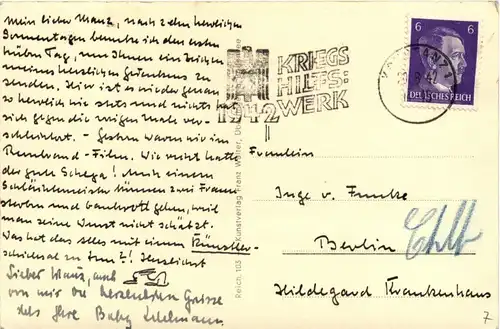 Mein lieber Manz, nach zehn herrlichen
Sonnentagen benutze ich den ersten
trüben Tag, um Ihnen ein Zeichen
meines herzlichen Gedenkens zu
senden. Hier ist es wieder genau
so herrlich wie stets und nichts hat
sich gegen die vorigen Male ver-
schlechtert. – Gestern waren wir im
Rembrand-Film. Wie recht hatte
der gute Schega! Auch einem
Schlächtermeister können zwei Frauen
sterben und bankrott gehen, weil
man seine Wurst nicht schätzt.
Was hat das alles mit einem Künstler-
schicksal zu tun?! Herzlichst
Lieber Manz, auch
von mir die herzlichsten Grüsse
stets Ihre Baby
KRIEGS
HILFS=
WERK
1942
6 6
DEUTSCHES REICH
Reich. 103 Kunstverlag Franz
Fräulein
Inge v. Funcke
Berlin
Hildegard Krankenhaus
7